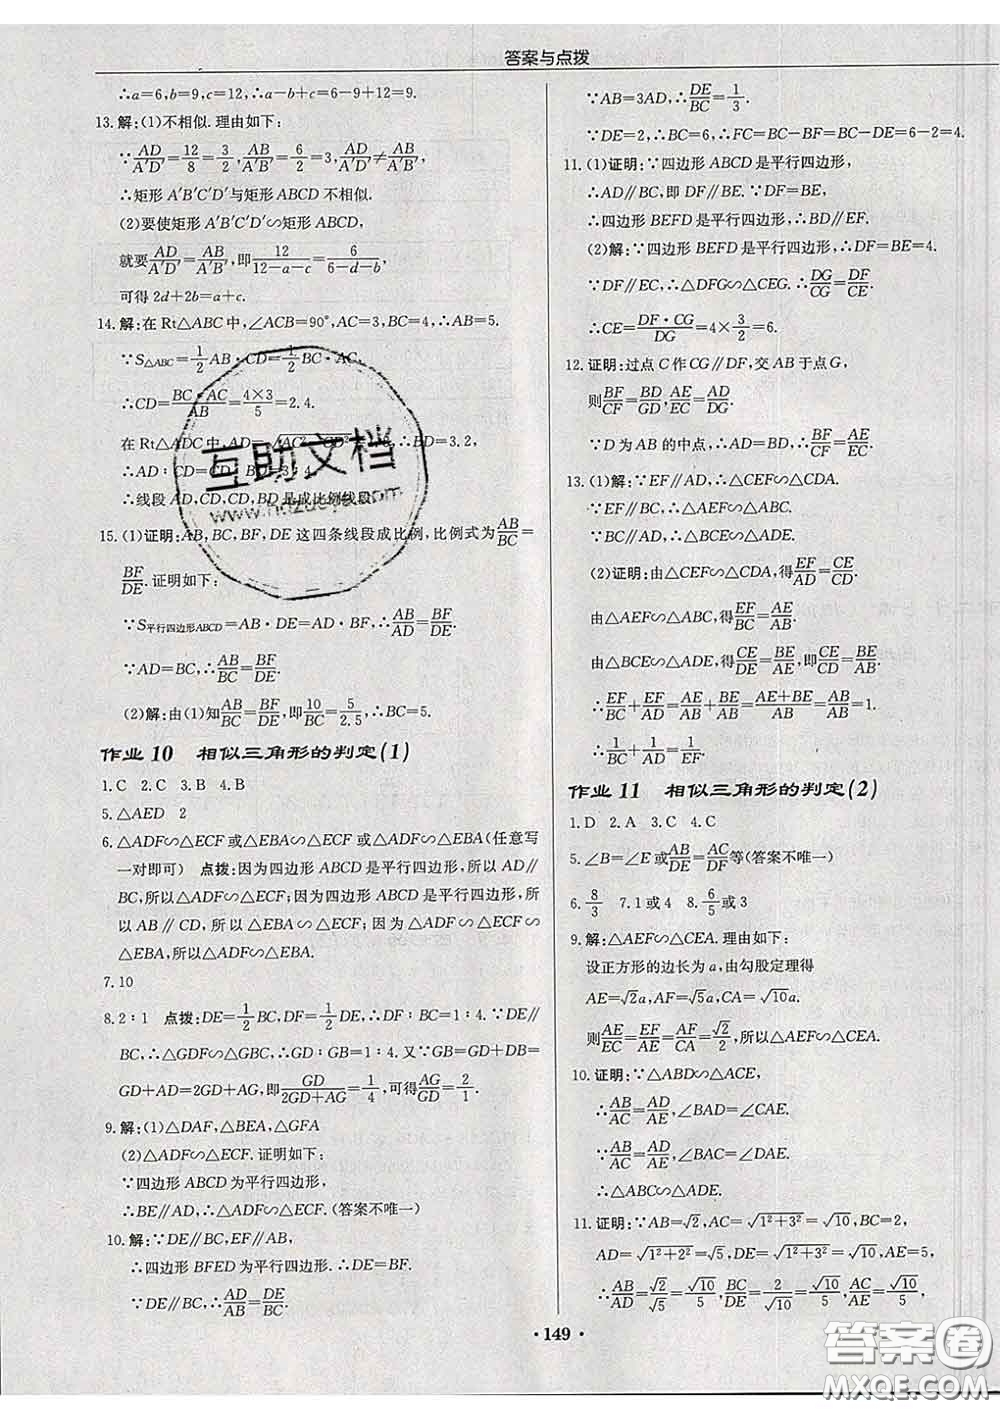 答案与点拨
∴a=6,b=9,c=12,∴a-b+c=6-9+12=9.
13.解:(1)不相似.理由如下:
∵AD/A'D'=12/8=3/2,AB/A'B'=6/2=3,AD/A'D'≠AB/A'B',
∴矩形A'B'C'D'与矩形ABCD不相似.
(2)要使矩形A'B'C'D'∽矩形ABCD,
就要AD/A'D'=AB/A'B',即12/(12-a-c)=6/(6-d-b),
可得2d+2b=a+c.
14.解:在Rt△ABC中,∠ACB=90°,AC=3,BC=4,∴AB=5.
∵S△ABC=1/2AB·CD=1/2BC·AC,
∴CD=BC·AC/AB=4×3/5=2.4.
在Rt△ADC中,AD=√AC²-CD²=1.8,∴BD=3.2,
∴AD:CD=CD:BD=3:4.
∴线段AD,CD,CD,BD是成比例线段.
15.(1)证明:AB,BC,BF,DE这四条线段成比例,比例式为AB/BC=
BF/DE.证明如下:
∵S平行四边形ABCD=AB·DE=AD·BF,∴AB/AD=BF/DE.
∵AD=BC,∴AB/BC=BF/DE.
(2)解:由(1)知AB/BC=BF/DE,即10/BC=5/2.5,∴BC=5.
作业10 相似三角形的判定(1)
1.C 2.C 3.B 4.B
5.△AED 2
6.△ADF∽△ECF或△EBA∽△ECF或△ADF∽△EBA(任意写
一对即可) 点拨:因为四边形ABCD是平行四边形,所以AD∥
BC,所以△ADF∽△ECF;因为四边形ABCD是平行四边形,所
以AB∥CD,所以△EBA∽△ECF;因为△ADF∽△ECF∽
△EBA,所以△ADF∽△EBA.
7.10
8.2:1 点拨:DE=1/2BC,DF=1/2DE,∴DF:BC=1:4.∵DE∥
BC,∴△GDF∽△GBC,∴GD:GB=1:4.又∵GB=GD+DB=
GD+AD=2GD+AG,即GD/(2GD+AG)=1/4,可得AG/GD=2/1.
9.解:(1)△DAF,△BEA,△GFA
(2)△ADF∽△ECF.证明如下:
∵四边形ABCD为平行四边形,
∴BE∥AD,∴△ADF∽△ECF.(答案不唯一)
10.解:∵DE∥BC,EF∥AB,
∴四边形BFED为平行四边形.∴DE=BF.
∵DE∥BC,∴AD/AB=DE/BC.
∵AB=3AD,∴DE/BC=1/3.
∵DE=2,∴BC=6,∴FC=BC-BF=BC-DE=6-2=4.
11.(1)证明:∵四边形ABCD是平行四边形,
∴AD∥BC,即DF∥BE.∵DF=BE,
∴四边形BEFD是平行四边形,∴BD∥EF.
(2)解:∵四边形BEFD是平行四边形,∴DF=BE=4.
∵DF∥EC,∴△DFG∽△CEG.∴DG/CG=DF/CE.
∴CE=DF·CG/DG=4×3/2=6.
12.证明:过点C作CG∥DF,交AB于点G,
则BF/CF=BD/GD,AE/EC=AD/DG.
∵D为AB的中点,∴AD=BD,∴BF/CF=AE/EC.
13.(1)解:∵EF∥AD,∴△CEF∽△CDA.
∵EF∥BC,∴△AEF∽△ABC.
∵BC∥AD,∴△BCE∽△ADE.
(2)证明:由△CEF∽△CDA,得EF/AD=CE/CD.
由△AEF∽△ABC,得EF/BC=AE/AB.
由△BCE∽△ADE,得CE/DE=BE/AE,即CE/CD=BE/AB.
∴EF/BC+EF/AD=AE/AB+BE/AB=(AE+BE)/AB=AB/AB=1.
∴1/BC+1/AD=1/EF.
作业11 相似三角形的判定(2)
1.D 2.A 3.C 4.C
5.∠B=∠E或AB/DE=AC/DF等(答案不唯一)
6.8/3 7.1或4 8.6/5或3
9.解:△AEF∽△CEA.理由如下:
设正方形的边长为a,由勾股定理得
AE=√2a,AF=√5a,CA=√10a.
则AE/EC=EF/AE=AF/CA=√2/2,所以△AEF∽△CEA.
10.证明:∵△ABD∽△ACE,
∴AB/AC=AD/AE,∠BAD=∠CAE.
∵AB/AC=AD/AE,∠BAC=∠DAE.
∴△ABC∽△ADE.
11.证明:∵AB=√2,AC=√1²+3²=√10,BC=2,
AD=√1²+2²=√5,DE=√1²+3²=√10,AE=5,
∴AB/AD=√2/√5=√10/5,BC/DE=2/√10=√10/5,AC/AE=√10/5,
·149·
互助文档
答案圈
MXQE.COM